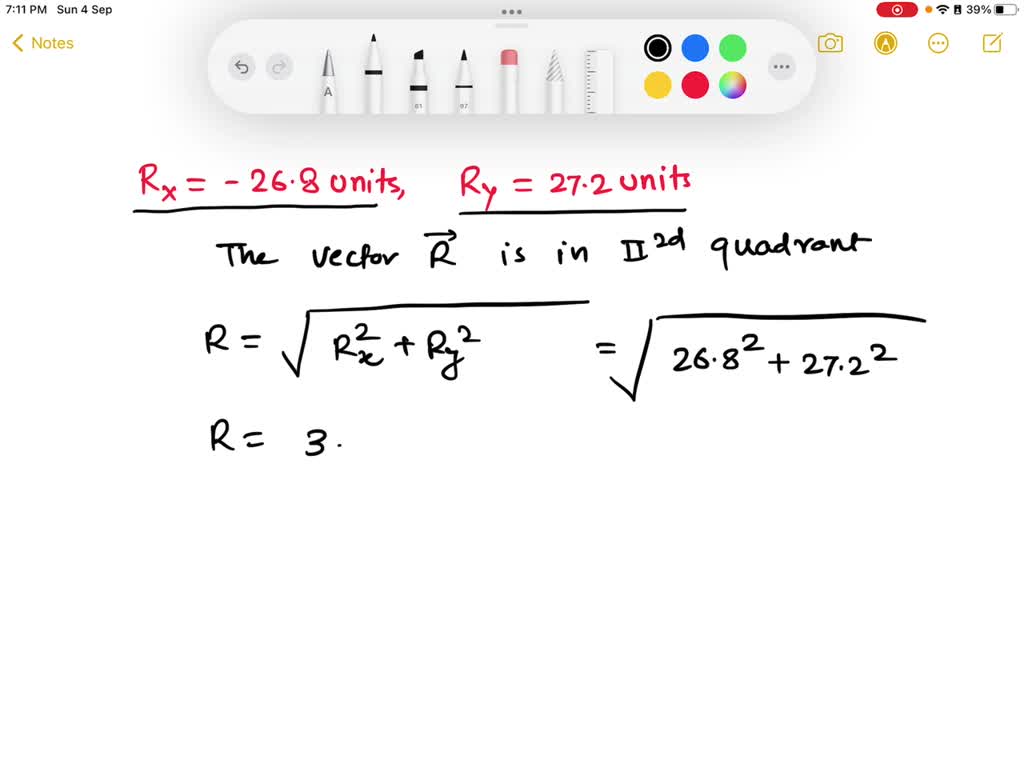 7:11 PM Sun 4 Sep 39%
Notes
A 01 97
Rx = - 26.8 units, Ry = 27.2 units
The vector R⃗ is in II 2d quadrant
R = √(Rx² + Ry²) = √(26.8² + 27.2²)
R = 3.